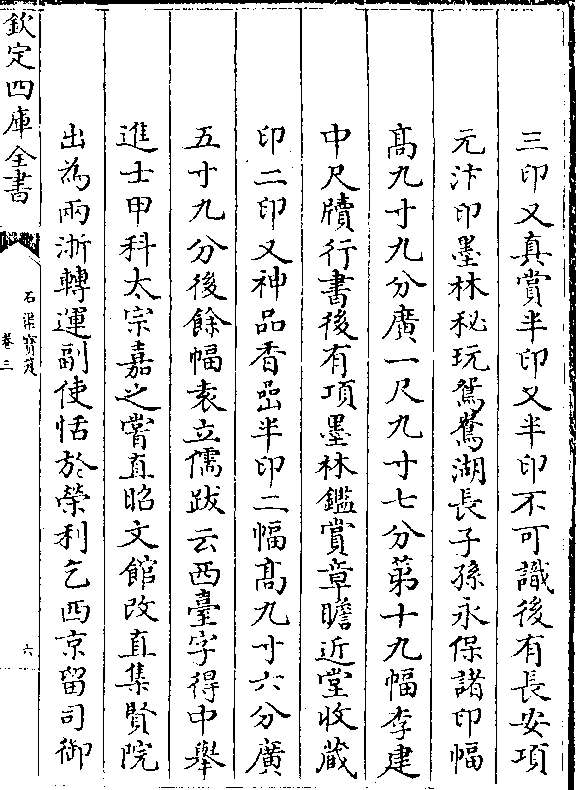 三印又真賞半印又半印不可識後有長安項
元汴印墨林秘玩鴛鴦湖長子孫永保諸印幅
高九寸九分廣一尺九寸七分第十九幅李建
中尺牘行書後有項墨林鑑賞章瞻近堂收蔵
印二印又神品香嵒半印二幅高九寸六分廣
五寸九分後餘幅袁立儒跋云西臺字得中舉
進士甲科太宗嘉之嘗直昭文館改直集賢院
出為兩浙轉運副使恬於榮利乞西京留司御
欽定四庫全書
石渠寳笈
卷三
六